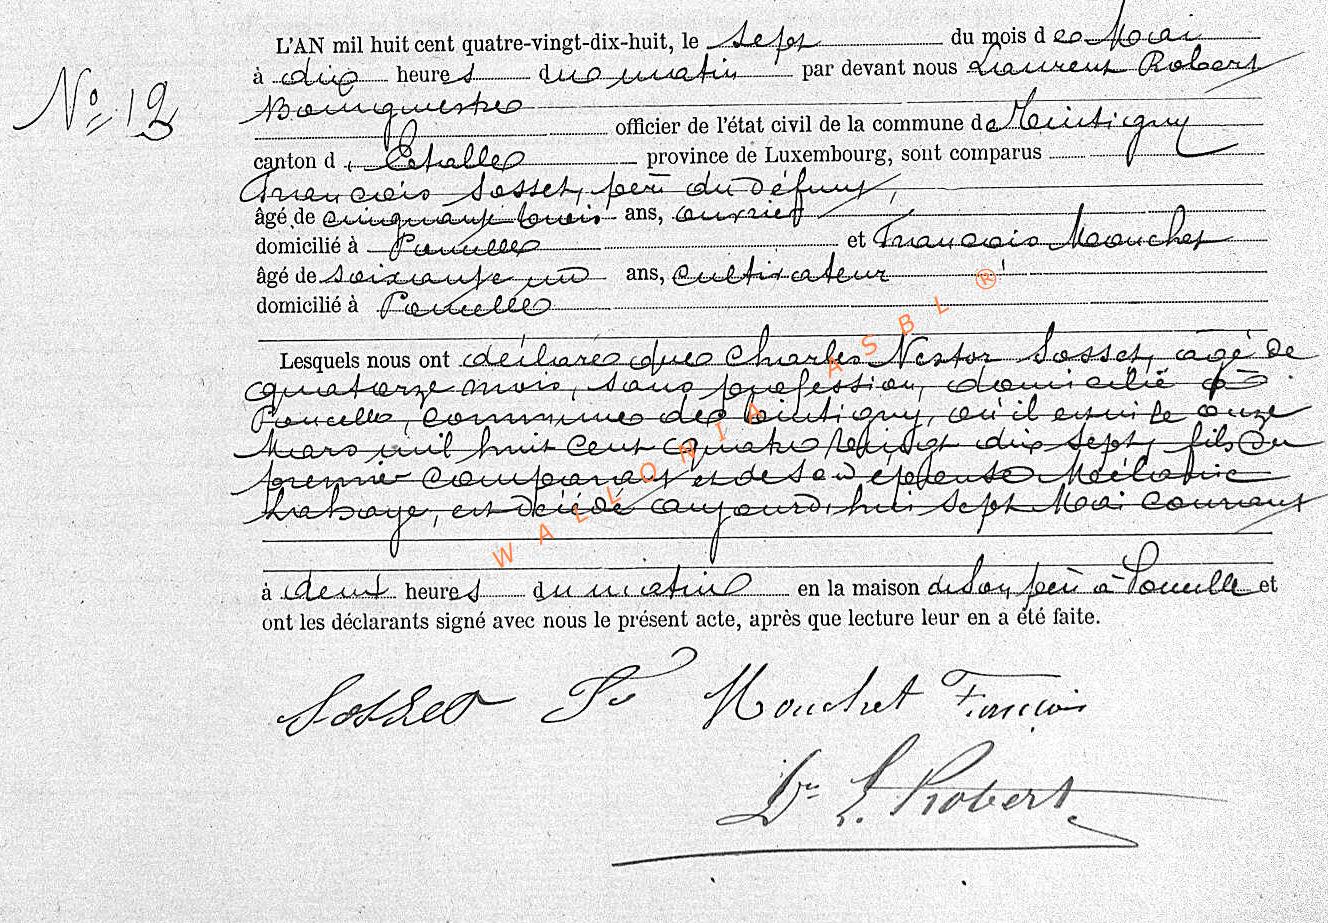 L'AN mil huit cent quatre-vingt-dix-huit, le sept du mois de Mai
No 12
à dix heures du matin par devant nous Laurent Robert
Bourgmestre
officier de l'état civil de la commune de Meix
canton d'Etalle province de Luxembourg, sont comparus
François Sosset, père du défunt,
âgé de cinquante trois ans, ouvrier
domicilié à et François Mouchet
âgé de soixante un ans, cultivateur
domicilié à
Lesquels nous ont déclaré que Charles Nestor Sosset, agé de
quatorze mois, sans profession, domicilié à
commune de où il est né le onze
Mars mil huit cent quatre vingt dix sept, fils du
premier comparant et de son épouse Mélanie
est décédé aujourd'hui sept Mai courant
à deux heures du matin en la maison de son père à et
ont les déclarants signé avec nous le présent acte, après que lecture leur en a été faite.
Sosset Fs Mouchet François
Dr L. Robert
WALLONIA ASBL ®